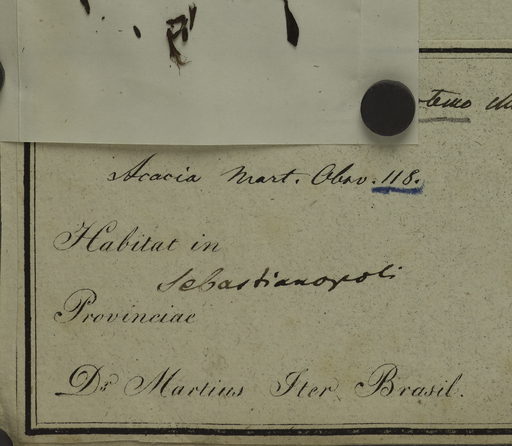 Acacia Mart. Obsv. 118.
Habitat in
Sebastianopoli
Provinciae
Dr Martius Iter Brasil.